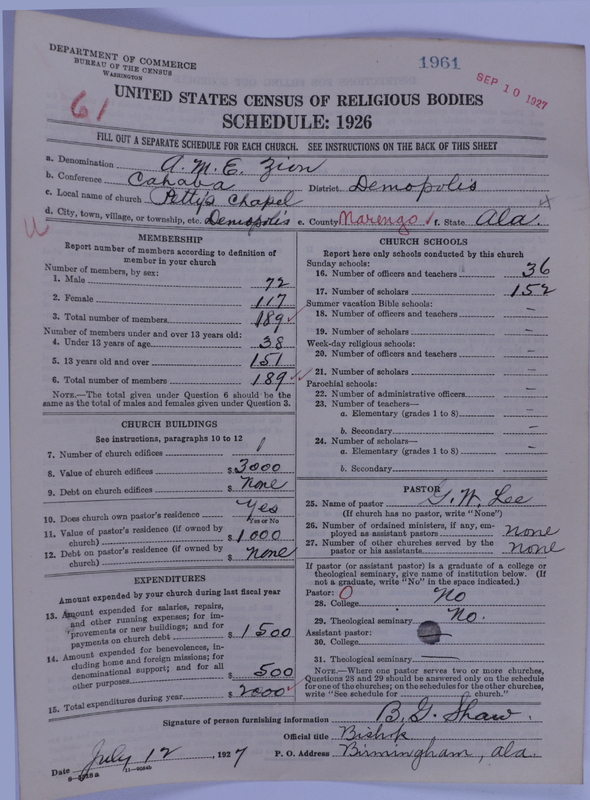 DEPARTMENT OF COMMERCE
BUREAU OF THE CENSUS
WASHINGTON
1961
SEP 10 1927
61
UNITED STATES CENSUS OF RELIGIOUS BODIES
SCHEDULE: 1926
FILL OUT A SEPARATE SCHEDULE FOR EACH CHURCH. SEE INSTRUCTIONS ON THE BACK OF THIS SHEET
a. Denomination A. M. E. Zion
b. Conference Cahaba District Demopolis
c. Local name of church Petty's Chapel
d. City, town, village, or township, etc. Demopolis e. County Marengo f. State Ala.
MEMBERSHIP
Report number of members according to definition of
member in your church
Number of members, by sex:
1. Male 72
2. Female 117
3. Total number of members 189
Number of members under and over 13 years old:
4. Under 13 years of age 38
5. 13 years old and over 151
6. Total number of members 189
NOTE.—The total given under Question 6 should be the
same as the total of males and females given under Question 3.
CHURCH BUILDINGS
See instructions, paragraphs 10 to 12
7. Number of church edifices 1
8. Value of church edifices $3000
9. Debt on church edifices $ None
10. Does church own pastor's residence Yes
Yes or No
11. Value of pastor's residence (if owned by
church) $1000
12. Debt on pastor's residence (if owned by
church) $ None
EXPENDITURES
Amount expended by your church during last fiscal year
13. Amount expended for salaries, repairs,
and other running expenses; for im-
provements or new buildings; and for
payments on church debt $1500
14. Amount expended for benevolences, in-
cluding home and foreign missions; for
denominational support; and for all
other purposes $500
15. Total expenditures during year $2000
CHURCH SCHOOLS
Report here only schools conducted by this church
Sunday schools:
16. Number of officers and teachers 36
17. Number of scholars 152
Summer vacation Bible schools:
18. Number of officers and teachers —
19. Number of scholars —
Week-day religious schools:
20. Number of officers and teachers —
21. Number of scholars —
Parochial schools:
22. Number of administrative officers —
23. Number of teachers—
a. Elementary (grades 1 to 8) —
b. Secondary —
24. Number of scholars—
a. Elementary (grades 1 to 8) —
b. Secondary —
PASTOR
25. Name of pastor G. W. Lee
(If church has no pastor, write "None")
26. Number of ordained ministers, if any, em-
ployed as assistant pastors none
27. Number of other churches served by the
pastor or his assistants none
If pastor (or assistant pastor) is a graduate of a college or
theological seminary, give name of institution below. (If
not a graduate, write "No" in the space indicated.)
Pastor: 0
28. College No
29. Theological seminary No.
Assistant pastor:
30. College —
31. Theological seminary —
NOTE.—Where one pastor serves two or more churches,
Questions 28 and 29 should be answered only on the schedule
for one of the churches; on the schedules for the other churches,
write "See schedule for church."
Signature of person furnishing information B. G. Shaw.
Official title Bishop
Date July 12, 1927 P. O. Address Birmingham, Ala.